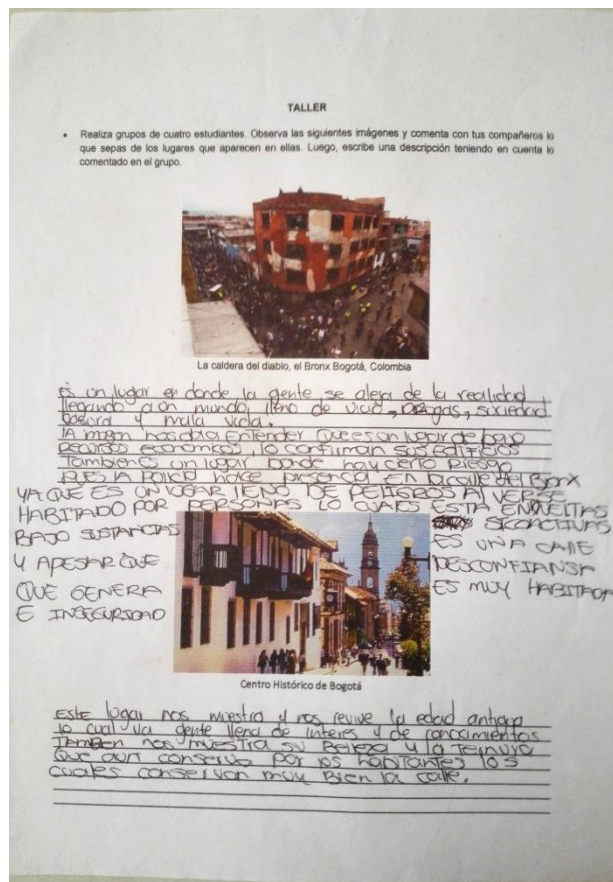 TALLER
• Realiza grupos de cuatro estudiantes. Observa las siguientes imágenes y comenta con tus compañeros lo
que sepas de los lugares que aparecen en ellas. Luego, escribe una descripción teniendo en cuenta lo
comentado en el grupo.
La caldera del diablo, el Bronx Bogotá, Colombia
es un lugar en donde la gente se aleja de la realidad
llegando a un mundo lleno de vicio, Drogas, suciedad
y mala vida.
la imagen nos da a Entender Que es un lugar de bajo
Recursos economicos, lo confirman sus edificios
Tambien es un lugar Donde hay cierto Riesgo
PUES la policia hace presencia En la calle del Bronx
YA QUE ES UN LUGAR LLENO DE PELIGROS Al VERSE
HABITADO POR PERSONAS LO CUALES ESTA ENVUELTAS
BAJO SUSTANCIAS SICOACTIVAS
ES UNA CALLE
Y APESAR QUE DESCONFIANSA
QUE GENERA ES MUY HABITADA
E INSEGURIDAD
Centro Histórico de Bogotá
Este lugar nos muestra y nos revive la edad antigua
lo cual va gente llena de interes y de conocimientos
Tambien nos muestra su Belleza y la Ternura
Que aun conserva por los habitantes los
cuales conservan muy Bien la calle.